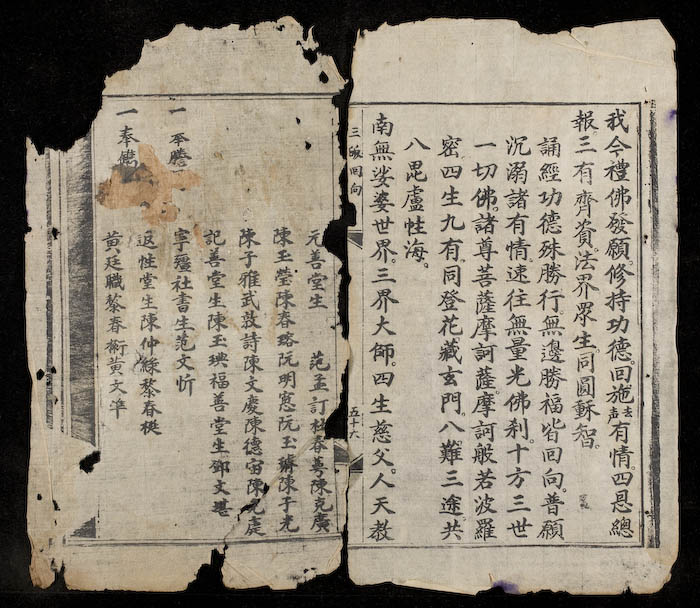 我今禮佛發願。修持功德。回施去声有情。四恩總
報。三有齊資。法界眾生。同圓穌智。
誦經功德殊勝行。無邊勝福皆回向。普願
沉溺諸有情速往無量光佛刹。十方三世
一切佛。諸尊菩薩摩訶薩。摩訶般若波羅
密四生九有。同登花藏玄門。八難三途。共
入毘盧性海。
南無娑婆世界。三界大師。四生慈父。人天教
三 回向 五十六
元善堂生 范孟訂杜春 陳克廣
陳玉瑩陳春瑢阮明窓阮玉 陳子光
陳子雅武敦詩陳文慶陳德宙陳允廷
記善堂生陳玉琠福善堂生鄧文
一奉謄 寧疆社書生范文忻
返性堂生陳仲 黎春梃
一奉 黃廷職黎春衛黃文準